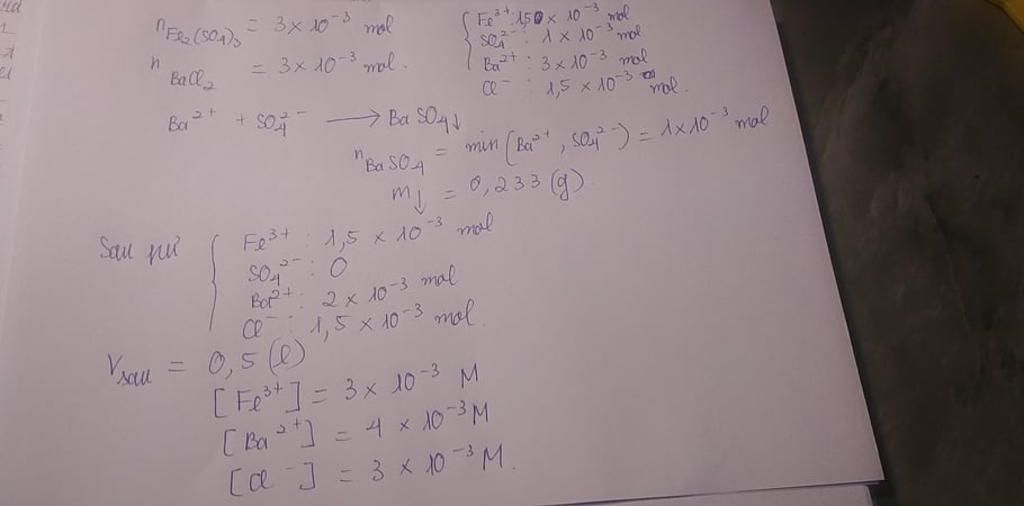 n Fe₂(SO₄)₃ = 3 × 10⁻³ mol
n BaCl₂ = 3 × 10⁻³ mol.
{ Fe³⁺ : 1,50 × 10⁻³ mol
SO₄²⁻ : 1 × 10⁻³ mol
Ba²⁺ : 3 × 10⁻³ mol
Cl⁻ : 1,5 × 10⁻³ mol.
Ba²⁺ + SO₄²⁻ ⟶ BaSO₄↓
n BaSO₄ = min (Ba²⁺, SO₄²⁻) = 1 × 10⁻³ mol
m↓ = 0,233 (g)
Sau pứ { Fe³⁺ : 1,5 × 10⁻³ mol
SO₄²⁻ : 0
Ba²⁺ : 2 × 10⁻³ mol
Cl⁻ : 1,5 × 10⁻³ mol.
V sau = 0,5 (l)
[Fe³⁺] = 3 × 10⁻³ M
[Ba²⁺] = 4 × 10⁻³ M
[Cl⁻] = 3 × 10⁻³ M.